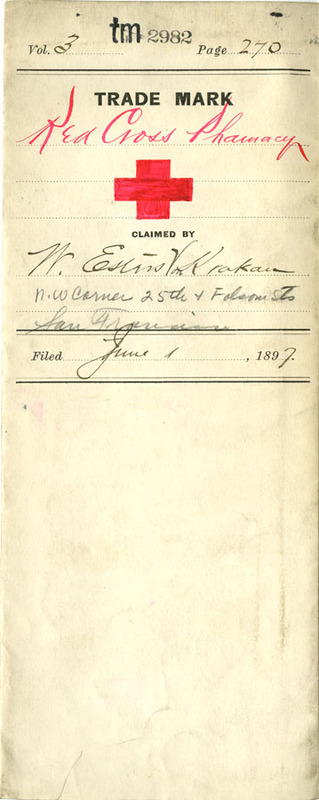 tm 2982
Vol. 3 Page 270
TRADE MARK
Red Cross Pharmacy
CLAIMED BY
W. Estes Von Krakau
N.W Corner 25th & Folsom Sts
San Francisco
Filed June 1, 1897.